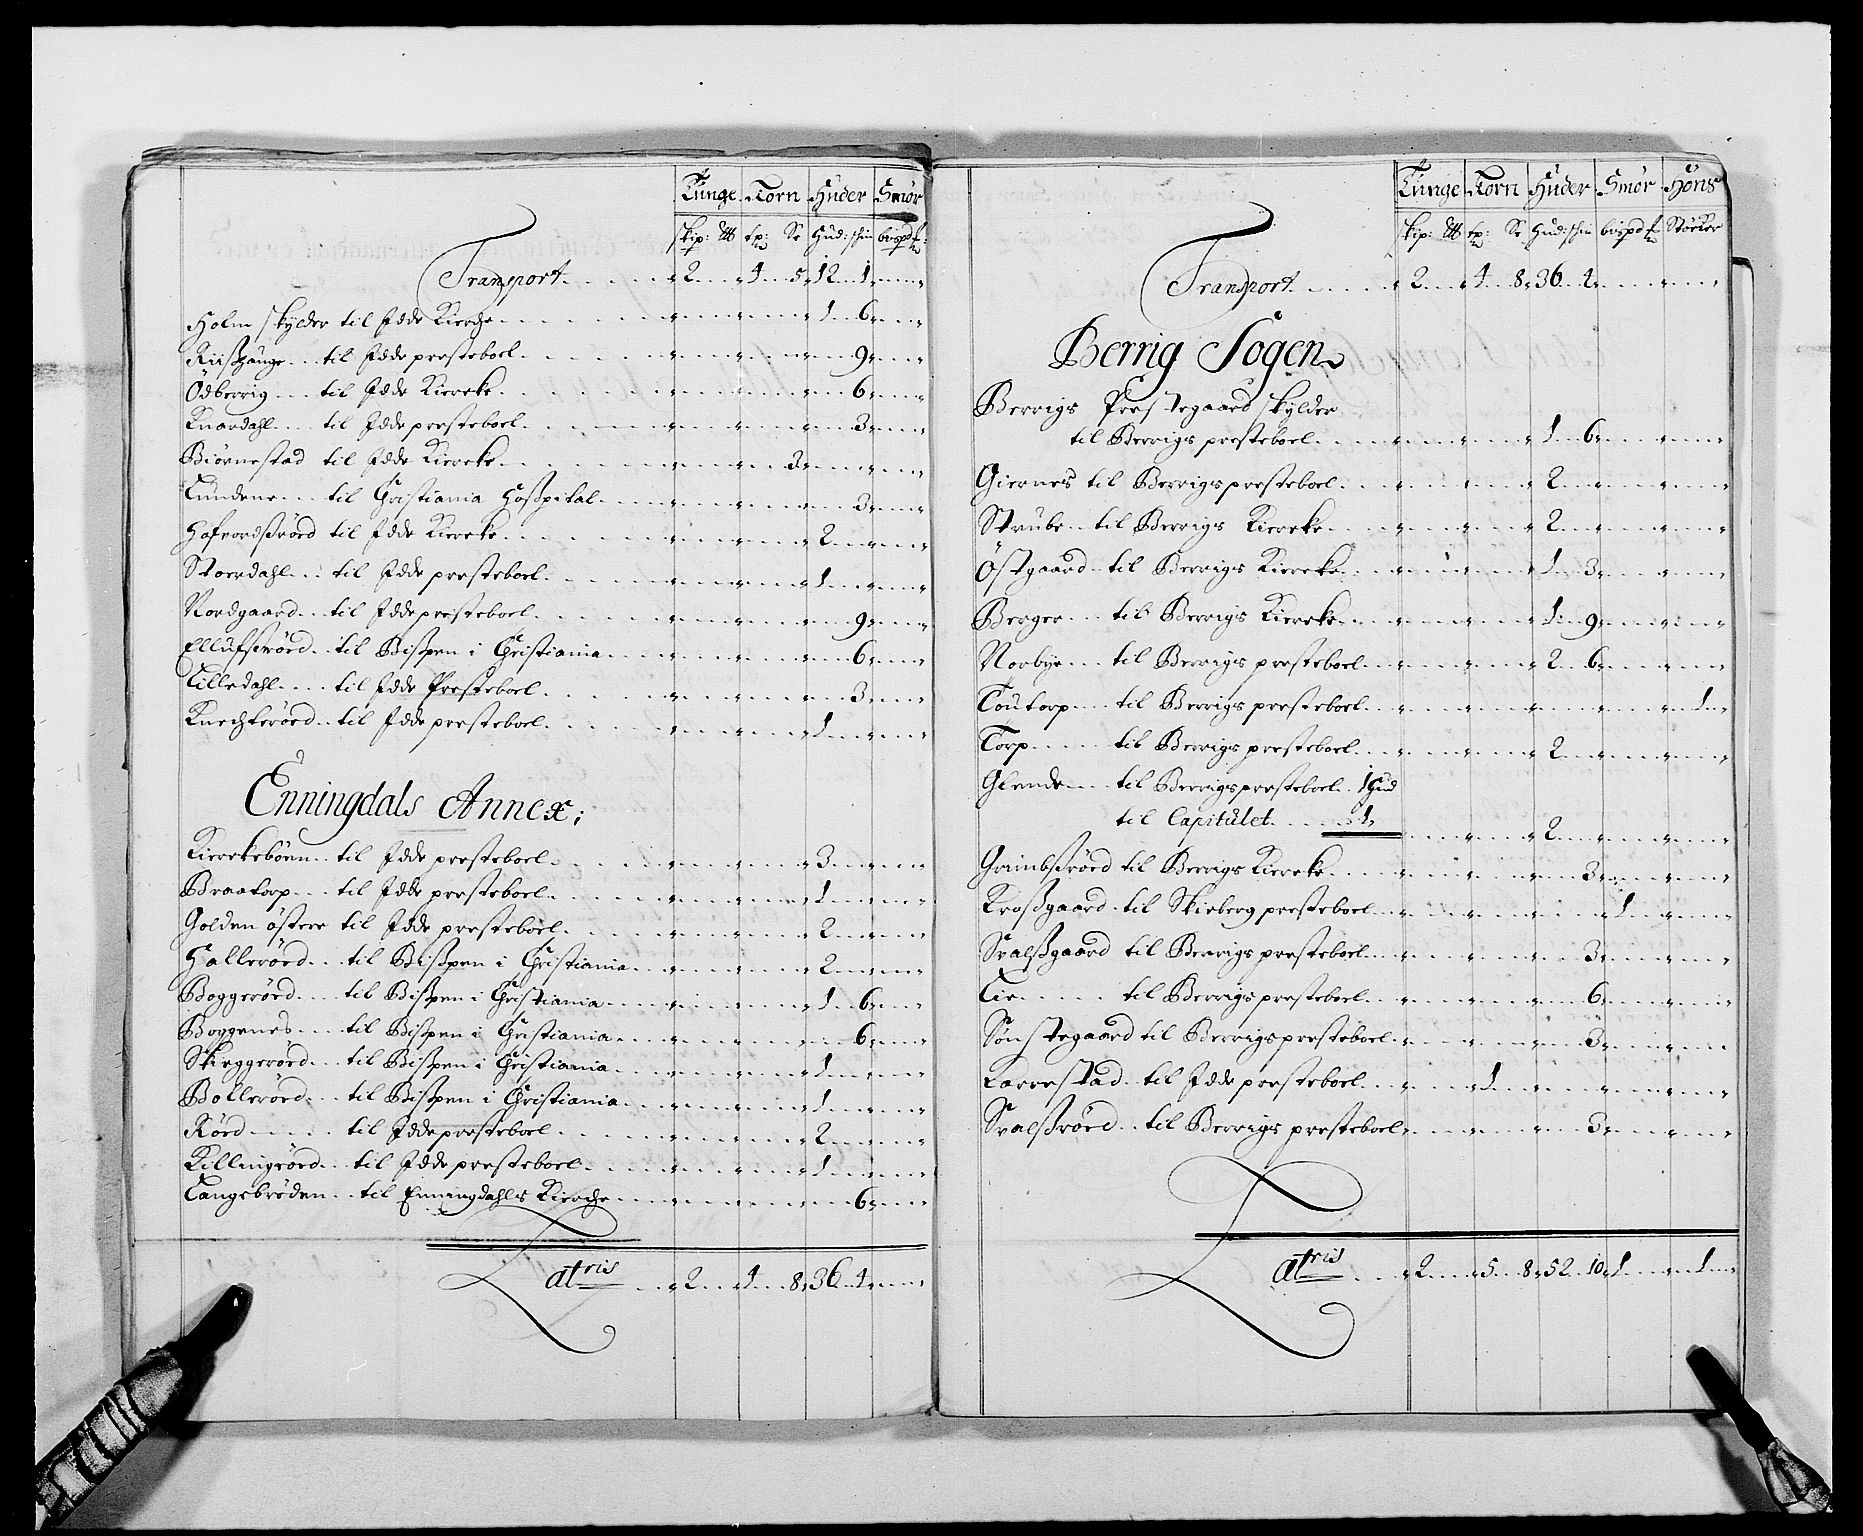 Tunge Korn Huder Smør
skip: ℔ tp: Se Hud: skin bispd
Transport 2 4 5 12 1
Holm skylder til Idde Kierche 1 6
Riishauge til Idde presteboel 9
Ödberrig til Idde Kiereke 6
Knardahl til Idde presteboel 3
Biörnestad til Idde Kiereke 3
Lundene til Christiania Hosspital 3
Hafvordsrörd til Idde Kiereke 2
Stoerdahl til Idde presteboel 1
Nordgaard til Idde presteboel 9
Ellufsrörd til Bispen i Christiania 6
Lilledahl til Idde Presteboel 3
Knechterörd til Idde presteboel 1
Enningdals Annex;
Kierekeböen til Idde presteboel 3
Braatorp til Idde presteboel 1
Golden östere til Idde presteboel 2
Hallerörd til Bispen i Christiania 2
Boggerörd til Bispen i Christiania 1 6
Boggenes til Bispen i Christiania 6
Skieggerörd til Bispen i Christiania 1
Bollerörd til Bispen i Christiania 1
Rörd til Idde presteboel 2
Killingrörd til Idde presteboel 1
Langebröden til Enningdahls Kierche 6
atris 2 4 8 36 4
Tunge Korn Huder Smør Høns
skip: ℔ tp: Se Hud: skin bispd Støcker
Transport 2 4 8 36 4
Berrig Sogen
Berrigs Prestegaard skylder
til Berrigs presteboel 1 6
Giernes til Berrigs presteboel 2
Strube til Berrigs Kiereke 2
Östgaard til Berrigs Kiereke 1 3
Berger til Berrigs Kiereke 1 9
Norbye til Berrigs presteboel 2 6
Toutorp til Berrigs presteboel 1
Torp til Berrigs presteboel 2
Glende til Berrigs presteboel 1 Hud
til Capitulet 1 2
Grimbsrörd til Berrigs Kiereke 3
Krossgaard til Skieberg presteboel 1
Svalssgaard til Berrigs presteboel 3
Lie til Berrigs presteboel 6
Sönstegaard til Berrigs presteboel 3
Karrestad til Idde presteboel 1
Svalsrörd til Berrigs presteboel 3
atris 2 5 8 52 10 1 1